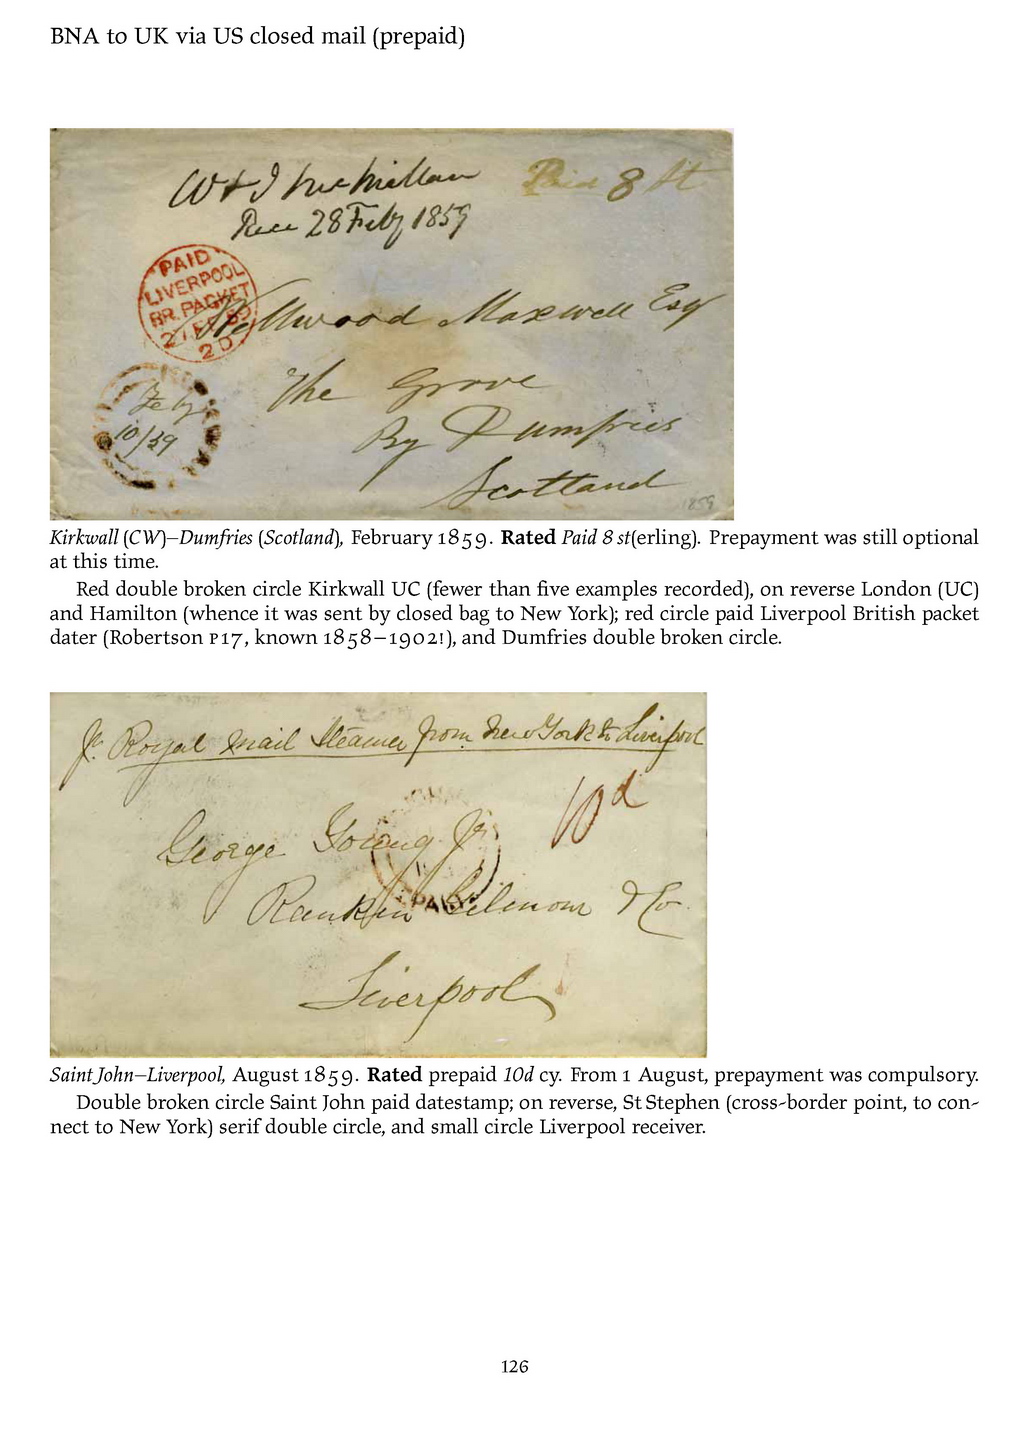 BNA to UK via US closed mail (prepaid)
W & J McMillan
Paid 8 St
Rece 28 Feby 1859
PAID
LIVERPOOL
BR. PACKET
27 FE 59
2D
Wellwood Maxwell Esq
The Grove
Feby
10/59
By Dumfries
Scotland
1859
Kirkwall (CW)–Dumfries (Scotland), February 1859. Rated Paid 8 st(erling). Prepayment was still optional
at this time.
Red double broken circle Kirkwall UC (fewer than five examples recorded), on reverse London (UC)
and Hamilton (whence it was sent by closed bag to New York); red circle paid Liverpool British packet
dater (Robertson P17, known 1858–1902!), and Dumfries double broken circle.
pr. Royal Mail Steamer from New York to Liverpool
10d
George Young Jr
Rankin Gilmour & Co
PAID
Liverpool
Saint John–Liverpool, August 1859. Rated prepaid 10d cy. From 1 August, prepayment was compulsory.
Double broken circle Saint John paid datestamp; on reverse, St Stephen (cross-border point, to con-
nect to New York) serif double circle, and small circle Liverpool receiver.
126